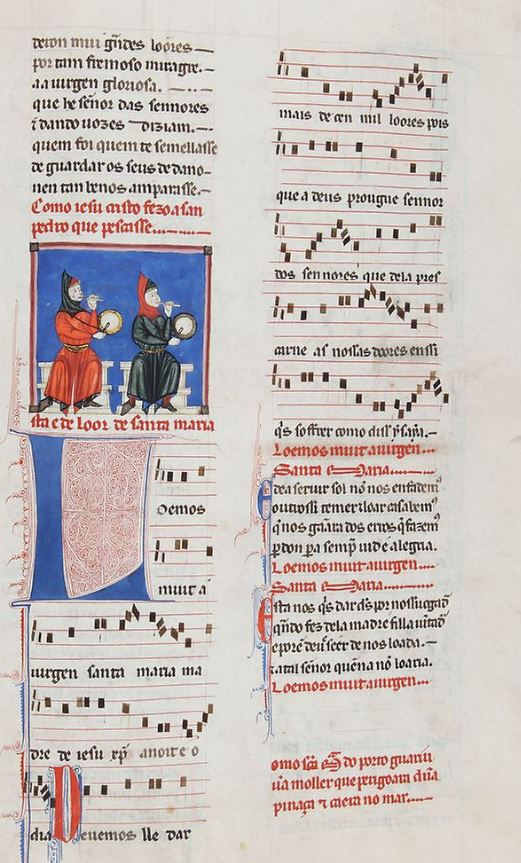 deron mui grãdes loores
por tam fremoso miragre.
a a uirgen gloriosa.
que he señor das sennores
⁊ dando uozes diziam.
quem foi quem te semellasse
de guardar os seus de dano
nen tan benos amparasse.
Como iesu cristo fezo a san
pedro que pescasse
sta e de loor de santa maria
L
oemos
muit a
uirgen santa maria ma
dre de iesu xp̃ a noite o
dia D euemos lle dar
mais de cen mil loores pois
que a deus prougue sennor
dos sennores que dela pres
carne as nossas doores en ssi
q̃s soffrer como diss
Loemos muit a uirgen
Santa Maria
dea seruir sol nõ nos enfadem
outrossi temer
q̃ nos gãna dos erros q̃ fazem
pdon pa semp̃ u nõ é alegria.
Loemos muit a uirgen
Santa Maria
sta nos q̃s dar ds por nossu
q̃ndo fez dela madre filla
e porẽ deu seer de nos loada.
⁊ atal señor quẽ na nõ loaria.
Loemos muit a uirgen
omo sc̃a M do porto guariu
ũa moller que perigoara dũa
pinaça ⁊ caera no mar